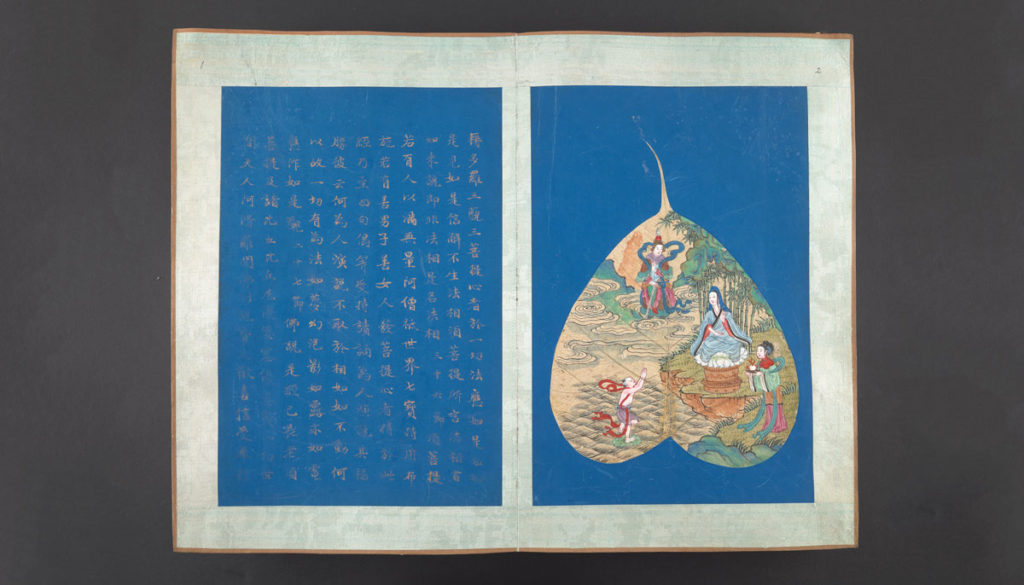 1
2
耨多羅三藐三菩提心者於一切法應如是
是見如是信解不生法相須菩提所言法相者
如來說即非法相是名法相三十六節須菩提
若有人以滿無量阿僧祇世界七寶持用布
施若有善男子善女人發菩提心者持於此
經乃至四句偈等受持讀誦為人演說其福
勝彼云何為人演說不取於相如如不動何
以故一切有為法如夢幻泡影如露亦如電
應作如是觀三十七節佛說是經已長老須
菩提及諸比丘比丘尼優婆塞
間天人阿修羅聞